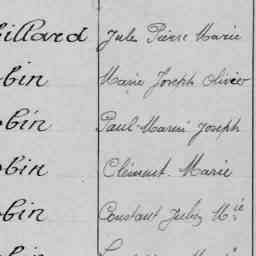 illard Jule Pierre Marie
obin Marie Joseph Olivier
obin Paul Marie Joseph
obin Clément Marie
obin Constant Julien Mie
obin